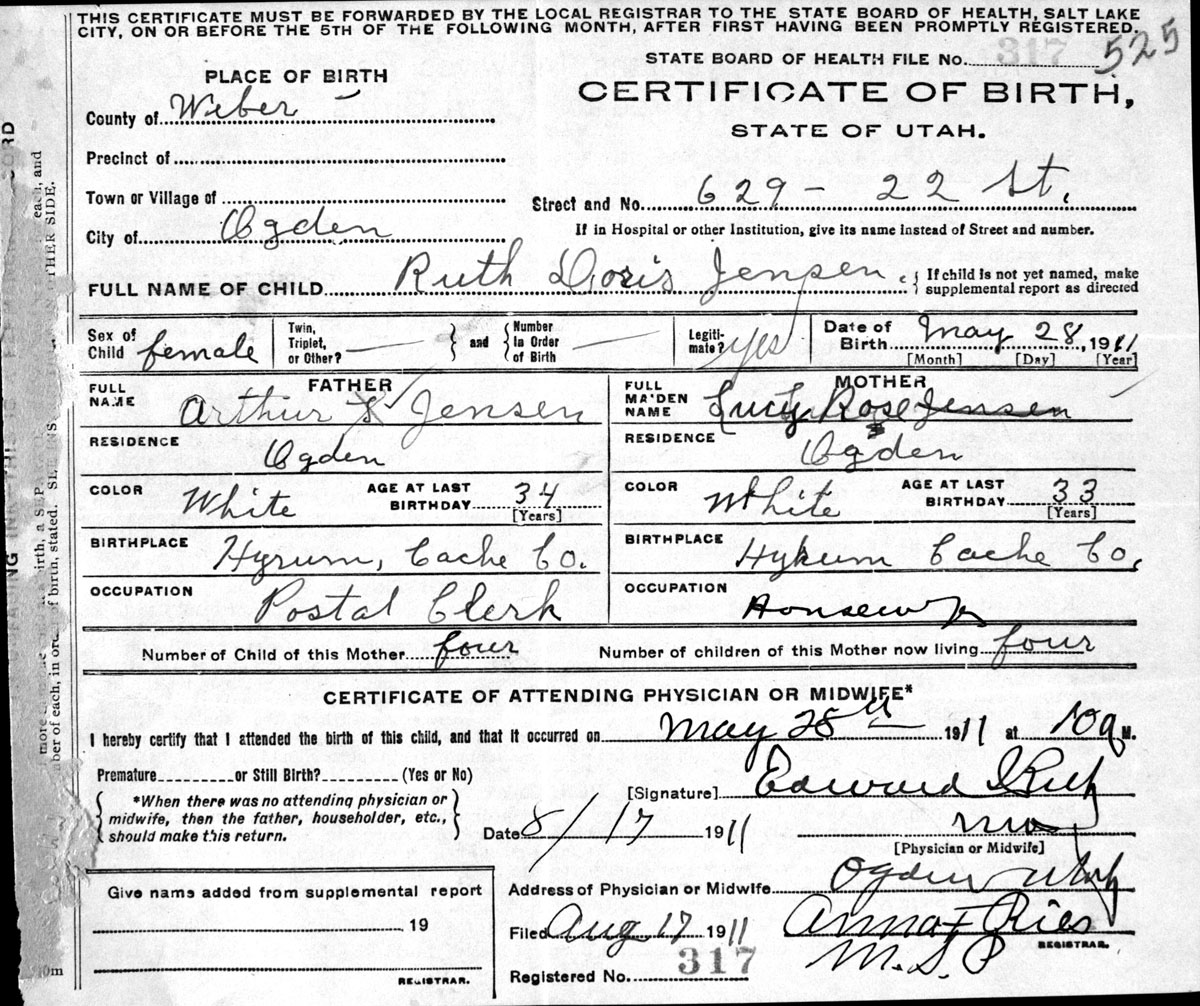 THIS CERTIFICATE MUST BE FORWARDED BY THE LOCAL REGISTRAR TO THE STATE BOARD OF HEALTH, SALT LAKE
CITY, ON OR BEFORE THE 5TH OF THE FOLLOWING MONTH, AFTER FIRST HAVING BEEN PROMPTLY REGISTERED.
STATE BOARD OF HEALTH FILE No. 317 525
PLACE OF BIRTH
CERTIFICATE OF BIRTH,
STATE OF UTAH.
County of Weber
Precinct of
Town or Village of
Street and No. 629 - 22 St.
City of Ogden
If in Hospital or other Institution, give its name instead of Street and number.
FULL NAME OF CHILD Ruth Doris Jensen. { If child is not yet named, make
supplemental report as directed
Sex of Child female
Twin, Triplet, or Other? — } and { Number In Order of Birth —
Legiti-mate? yes
Date of Birth May 28, 1911
[Month] [Day] [Year]
FATHER
FULL NAME Arthur Jensen
MOTHER
FULL MAIDEN NAME Lucy Rose Jensen
RESIDENCE Ogden
RESIDENCE Ogden
COLOR White AGE AT LAST BIRTHDAY 34 [Years]
COLOR White AGE AT LAST BIRTHDAY 33 [Years]
BIRTHPLACE Hyrum, Cache Co.
BIRTHPLACE Hyrum Cache Co.
OCCUPATION Postal Clerk
OCCUPATION Housewife
Number of Child of this Mother four Number of children of this Mother now living four
CERTIFICATE OF ATTENDING PHYSICIAN OR MIDWIFE*
I hereby certify that I attended the birth of this child, and that it occurred on May 28th 1911 at 10a M.
Premature or Still Birth? (Yes or No)
[Signature] Edward I Rich
{ *When there was no attending physician or
midwife, then the father, householder, etc.,
should make this return. }
Date 8/17 1911
[Physician or Midwife]
Give name added from supplemental report
19
REGISTRAR.
Address of Physician or Midwife Ogden Utah
Filed Aug 17 1911 Anna Ries
REGISTRAR.
Registered No. 317